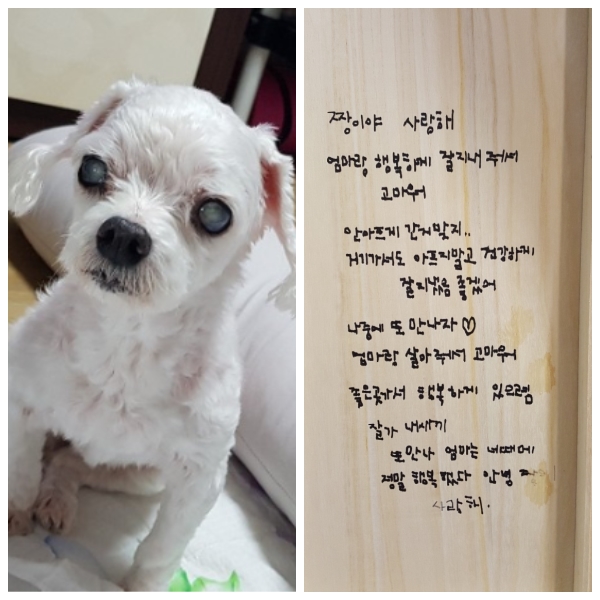 짱이야 사랑해
엄마랑 행복하게 잘지내 줘서
고마워
안아프게 간거맞지..
거기가서도 아프지말고 건강하게
잘지냈음 좋겠어
나중에 또 만나자♡
엄마랑 살아줘서 고마워
좋은곳가서 행복하게 있으렴
잘가 내새끼
또만나 엄마는 너때매
정말 행복했다 안녕
사랑해.